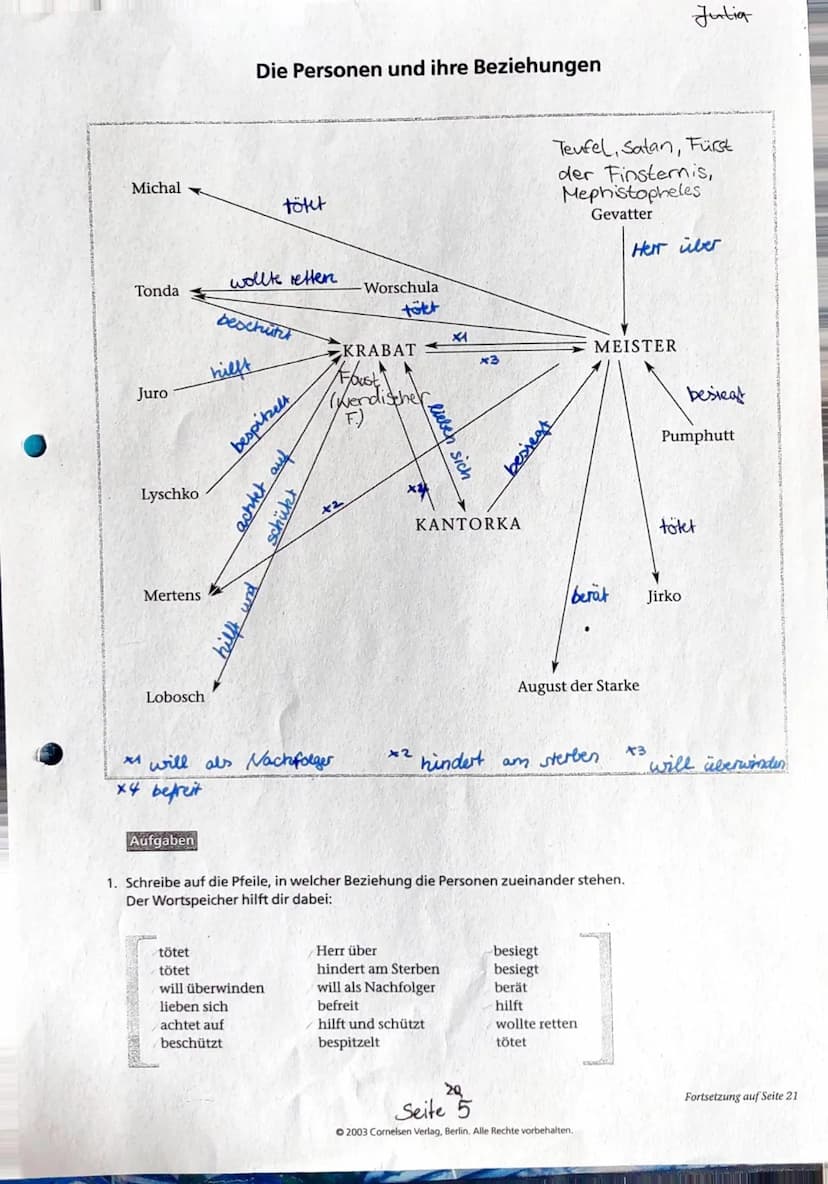 Julia
Die Personen und ihre Beziehungen
Teufel, Satan, Fürst
der Finsternis,
Mephistopheles
Michal
Gevatter
tötet
Herr über
wollte retten
Tonda
Worschula
tötet
beschützt
x1
KRABAT
MEISTER
x3
hilft
Faust
(Wendischer
F.)
Juro
besiegt
bespitzelt
lieben sich
besiegt
Pumphutt
achtet auf
Lyschko
x4
schützt
x2
KANTORKA
tötet
Mertens
hilft und
berät
Jirko
Lobosch
August der Starke
x1 will als Nachfolger
x2 hindert am sterben
x3 will überwinden
x4 befreit
Aufgaben
1. Schreibe auf die Pfeile, in welcher Beziehung die Personen zueinander stehen.
Der Wortspeicher hilft dir dabei:
tötet Herr über besiegt
tötet hindert am Sterben besiegt
will überwinden will als Nachfolger berät
lieben sich befreit hilft
achtet auf hilft und schützt wollte retten
beschützt bespitzelt tötet
20
Seite 5
Fortsetzung auf Seite 21
© 2003 Cornelsen Verlag, Berlin. Alle Rechte vorbehalten.